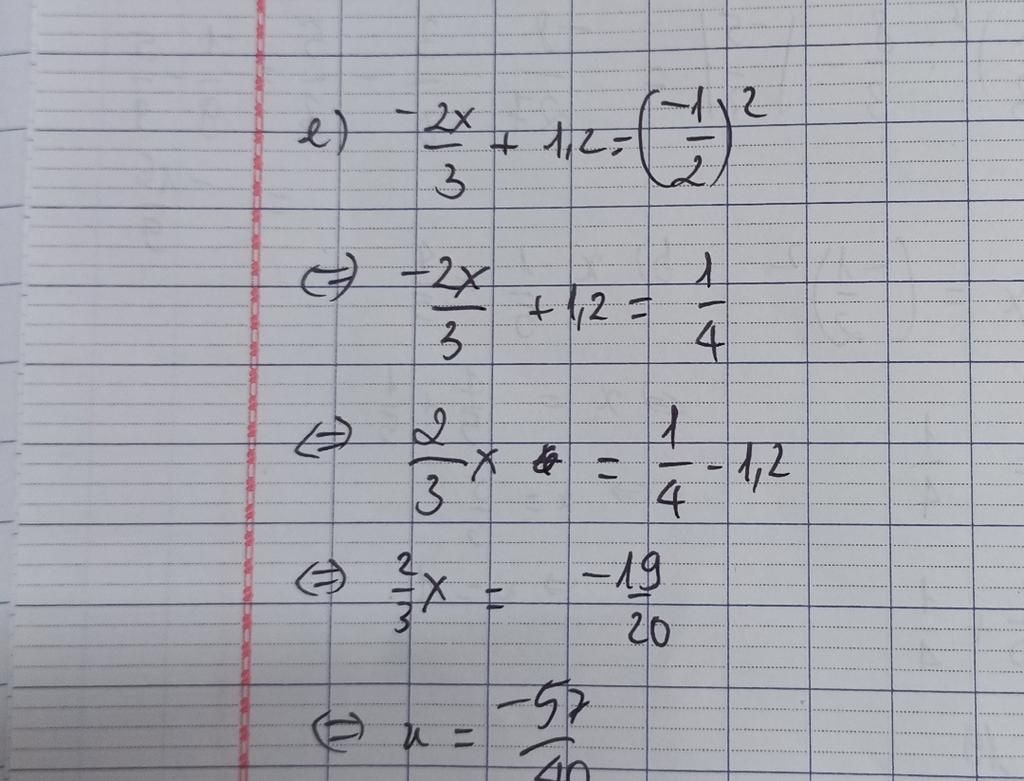 e) -2x/3 + 1,2 = (-1/2)^2
⇔ -2x/3 + 1,2 = 1/4
⇔ 2/3 x = 1/4 - 1,2
⇔ 2/3 x = -19/20
⇔ x = -57/40